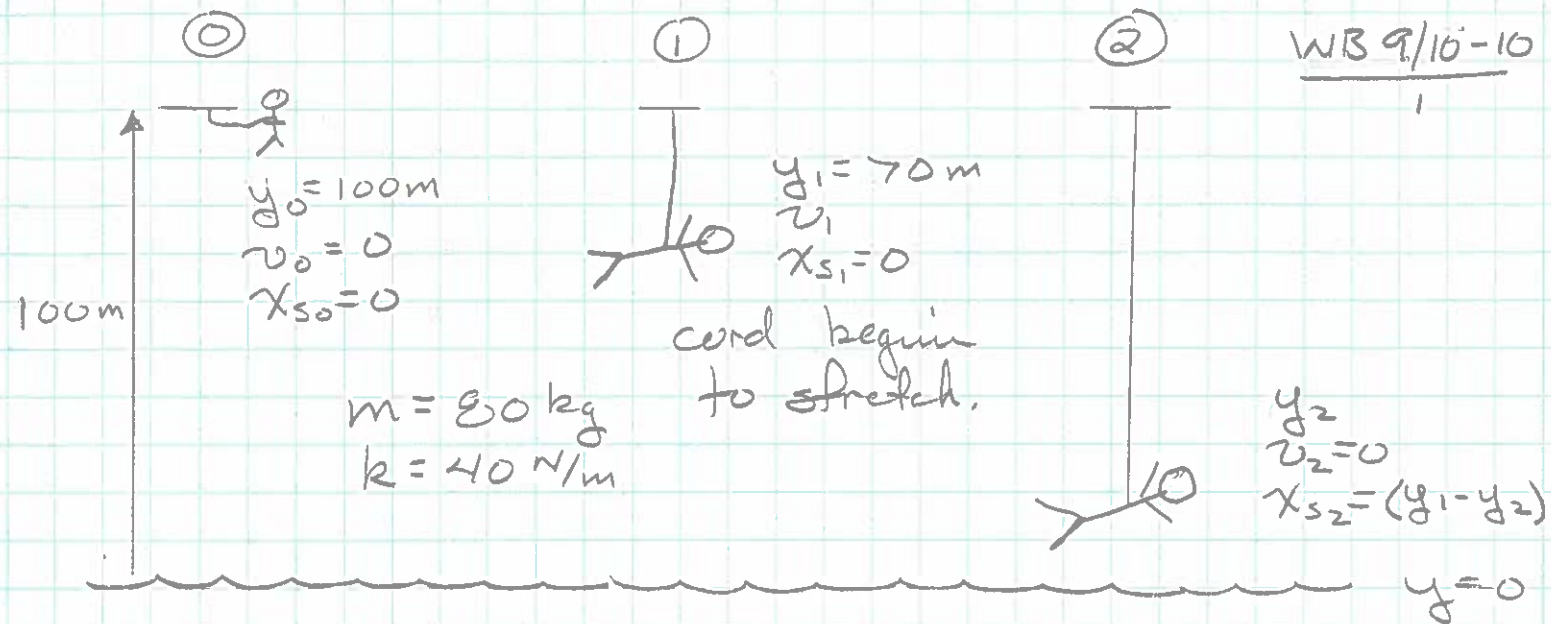 ⓪
①
②
WB 9/10-10
1
y₀ = 100m
v₀ = 0
xs₀ = 0
100m
y₁ = 70 m
v₁
xs₁ = 0
cord begin
to stretch.
m = 80 kg
k = 40 N/m
y₂
v₂ = 0
xs₂ = (y₁ - y₂)
y = 0